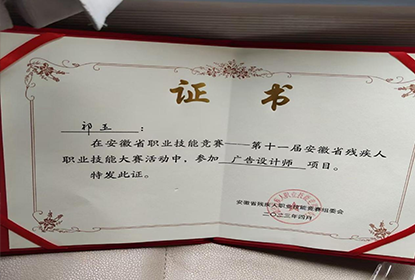 证书
祁玉：
在安徽省职业技能竞赛——第十一届安徽省残疾人
职业技能大赛活动中，参加 广告设计师 项目。
特发此证。
安徽省残疾人职业技能竞赛组委会
二〇二三年四月